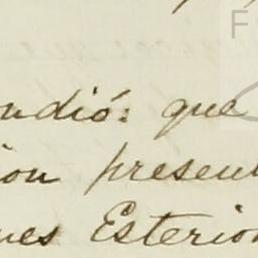 ndió: que
ion present
nes Esterior